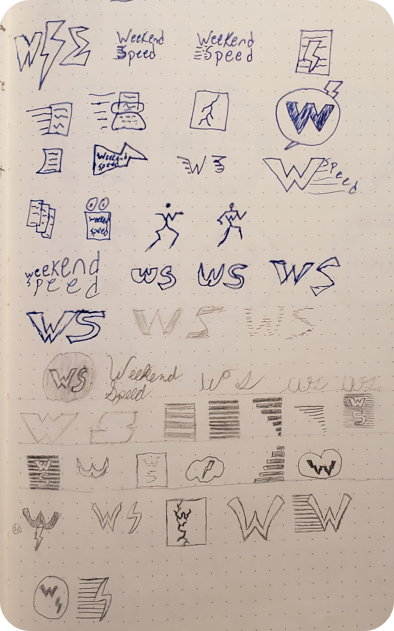 WSE
Weekend Speed
Weekend Speed
W
Weekend Speed
W
W Speed
Weekend Speed
W
weekend speed
WS
WS
WS
WS
WS
WS
WS
Weekend Speed
WS
WS
WS
WS
WS
W
WS
W
W
WS
W
W
W
W